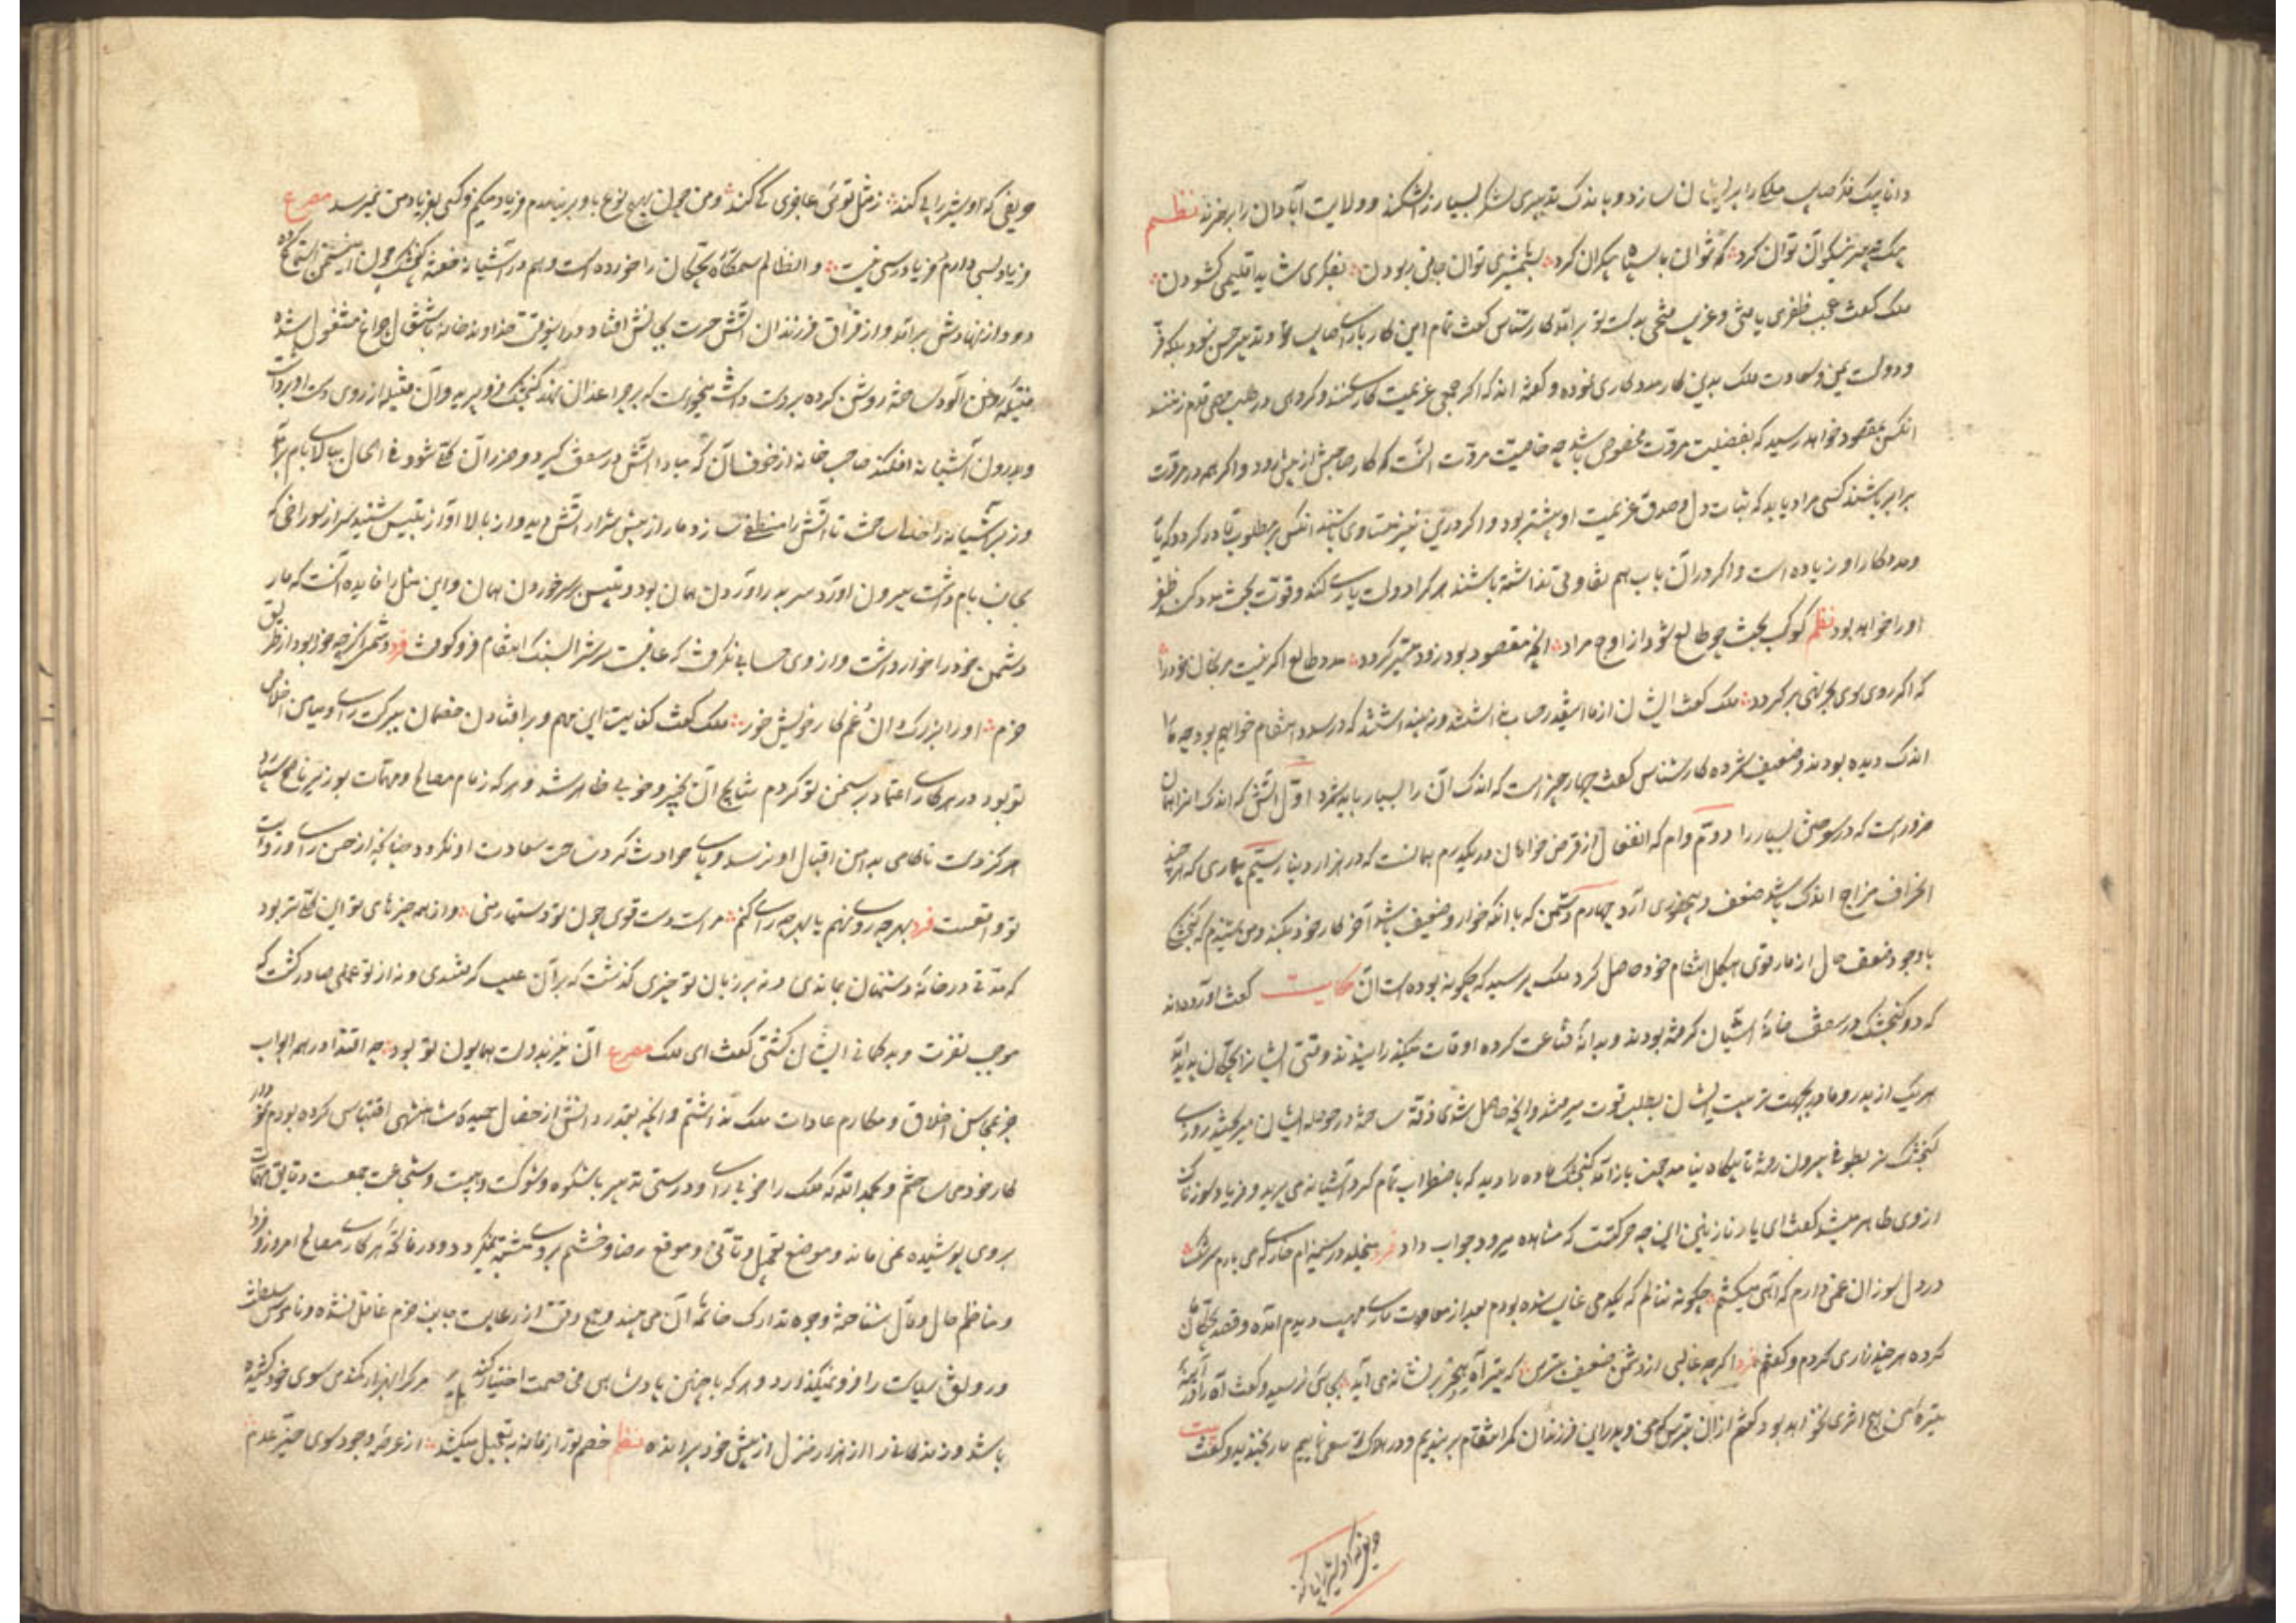 دانا بیک فکر صایب ملکی را پریشان سازد و باندک تدبیری لشکر بسیار را بشکند و ولایت آبادان را بر هم زند نظم
بیک تدبیر نیکو آن توان کرد که نتوان با سپاه بیکران کرد بشمشیری توان جانی ربودن بفکری شاید اقلیمی کشودن
ملک کفت عجب ظفری یافتی و غریب فتحی بدست تو برآمد کارشناس کفت تمام این کار برای صایب و تدبیر حسن نبود بلکه فر
و دولت و یمن سعادت ملک بدین کار مددکاری نموده و کفته اند که اکر جمعی عزیمت کاری کنند و کروهی در طلب مهمی قدم زنند
آنکس بمقصود خواهد رسید که بفضیلت مروت مخصوص باشد چه خاصیت مروت آنست که کار صاحبش از پیش رود و اکر همه در مروت
برابر باشند کسی مراد یابد که ثبات دل و صدق عزیمت او بیشتر بود و اکر درین نیز متساوی باشند آنکس بر مطلوب قادر کردد که یار
و مددکار او زیاده است و اکر در آن باب هم تفاوتی نداشته باشند هر کرا دولت یاری کند و قوت بخت مدد کند ظفر
او را خواهد بود نظم کوکب بخت چو طالع شود از اوج مراد آنچه مقصود بود زود میسر کردد مدد طالع اکر نیست مرنجان خود را
که اکر روی سوی بحر نهی بر کردد ملک کفت ایشان از ما اینقدر حساب نداشتند و نه پنداشتند که در صدد انتقام خواهیم بود چه ما را
اندک دیده بودند و ضعیف شمرده کارشناس کفت چهار چیز است که اندک آن را بسیار باید شمرد اول آتش که اندک او را همان
ضرر است که در سوختن بسیار را دوم وام که انفعال از قرض خواهان در یکدرم همانست که در هزار دینار سیم بیماری که هر چند
انحراف مزاج اندک باشد ضعف و بیحضوری آرد چهارم دشمن که با آنکه خوار و ضعیف باشد آخر کار خود بکند و من شنیدم که کنجشک
باوجود ضعف حال از مار قوی هیکل انتقام خود حاصل کرد ملک پرسید که چکونه بوده است آن حکایت کفت آورده اند
که دو کنجشک در سقف خانهٔ آشیان کرفته بودند و بدانهٔ قناعت کرده اوقات میکذرانیدند وقتی ایشانرا بچکان پدید آمد
هر یک از پدر و مادر بجهت تربیت ایشان بطلب قوت میرفتند و آنچه حاصل شدی ذقه ساخته در حوصله ایشان میریختند روزی
کنجشک نر بطرفی بیرون رفته تا بیکاه نیامد چون باز آمد کنجشک ماده را دید که باضطراب تمام کرد آشیانه می پرید و فریاد سوزناک
از وی ظاهر میشد کفت ای یار نازنین این چه حرکتست که مشاهده میرود جواب داد فرد میخلد در سینه ام خاری که می بارم سرشک
در دل سوزان غمی دارم که آهی میکشم چکونه ننالم که یکدمی غایب شده بودم بعد از معاودت ماری مهیب دیدم آمده و قصد بچکان
کرده هر چند زاری کردم و کفتم فرد اکرچه غالبی از دشمن ضعیف بترس که تیر آه سحر بر نشانه می آید بجایی نرسید و کفت آه ترا در آینهٔ
تیرهٔ من هیچ اثری نخواهد بود کفتم از آن بترس که من و پدر این فرزندان کمر انتقام بر بندیم و در هلاکت سعی نماییم مار بخندید و کفت بیت
حریفی که او شیر را پی کند
حریفی که او شیر را پی کند ز مثل توئی عاجزی کی کند و من چون بهیچ نوع با او بر نیامدم فریاد میکنم و کسی بفریاد من نمیرسد مصرع
فریاد بسی دارم و فریادرسی نیست و آن ظالم ستمکاره بچکان را خورده است و هم در آشیانه خفته کنجشک چون این سخن استماع کرده
دود از نهادش برآمد و از فراق فرزندان آتش حسرت بجانش افتاد در آن وقت خداوند خانه باشتغال چراغ مشغول شده
فتیله روغن آلود ساخته روشن کرده بر دست داشت میخواست که بر چراغدان نهد کنجشک فرو پرید و آن فتیله از روی دست او برداشت
و بدرون آشیانه افکند صاحب خانه از خوف آن که مبادا آتش در سقف کیرد و ضرر آن کلی شود فی الحال ببالای بام برآمد
و زیر آشیانه را خالی ساخت تا آتش را منطفی سازد مار از پیش شرار آتش دید و از بالا آواز تیس شنید سر از سوراخی که
بجانب بام داشت بیرون آورد سر بدر آوردن همان بود و تیس بر سر خوردن همان و این مثل را فایده آنست که مار
دشمن خود را خوار داشت و از وی حسابی نکرفت که عاقبت سرش را بسنک انتقام فرو کوفت فرد دشمن اکرچه خرد بود از طریق
حزم او را بزرک دان و غم کار خویش خور ملک کفت کفایت این مهم و بر افتادن خصمان ببرکت رای و میامن اخلاص
تو بود و در هر کاری اعتماد بر سخن تو کردم نتایج آن بخیر و خوبی ظاهر شد و هر که زمام مصالح و مهمات بوزیر ناصح سپارد
هرکز دست ناکامی بدامن اقبال او نرسد و پای حوادث کرد ساحت سعادت او نکردد چنانکه از حسن رای و رزانت
تو واقعست فرد بهر چه روی نهم یا بهر چه رای کنم مراست دست قوی چون تو دستیار منی و از همه چیزهای تو این کلی تر بود
که مدتی در خانهٔ دشمنان بماندی و نه بر زبان تو چیزی کذشت که بر آن عیب کرفتندی و نه از تو عملی صادر کشت که
موجب نفرت و بدکمانی ایشان کشتی کفت ای ملک مصرع آن نیز بدولت همایون تو بود چه اقتدا در همه ابواب
جز بمحاسن اخلاق و مکارم عادات ملک نداشتم و آنچه بقدر دانش از خصال حمیده شاهنشهی اقتباس کرده بودم نمودار
کار خود می ساختم و بحمد الله که ملک را خوبی رای و درستی تدبیر با شکوه و شوکت و هیبت و شجاعت جمعست دقایق مهمات
بروی پوشیده نمی ماند و موضع تعجیل و تأنی و موقع رضا و خشم بروی مشتبه نمیکردد و در فاتحهٔ هر کاری مصالح امروز و فردا
و مناظم حال و مآل شناخته وجوه تدارک خاتمهٔ آن می بیند و هیچ وقت از رعایت جانب حزم غافل نشده و ناموس سلطنت
و رونق سیاست را فرو نمیکذارد و هر که با چنین پادشاهی مخاصمت اختیار کند مرک را بهزار کمند سوی خود کشیده
باشد و زندکانی را از هزار منزل از پیش خود برانده نظم خصم تو را زمانه بتعجیل میکشد از عرصهٔ وجود سوی حیز عدم